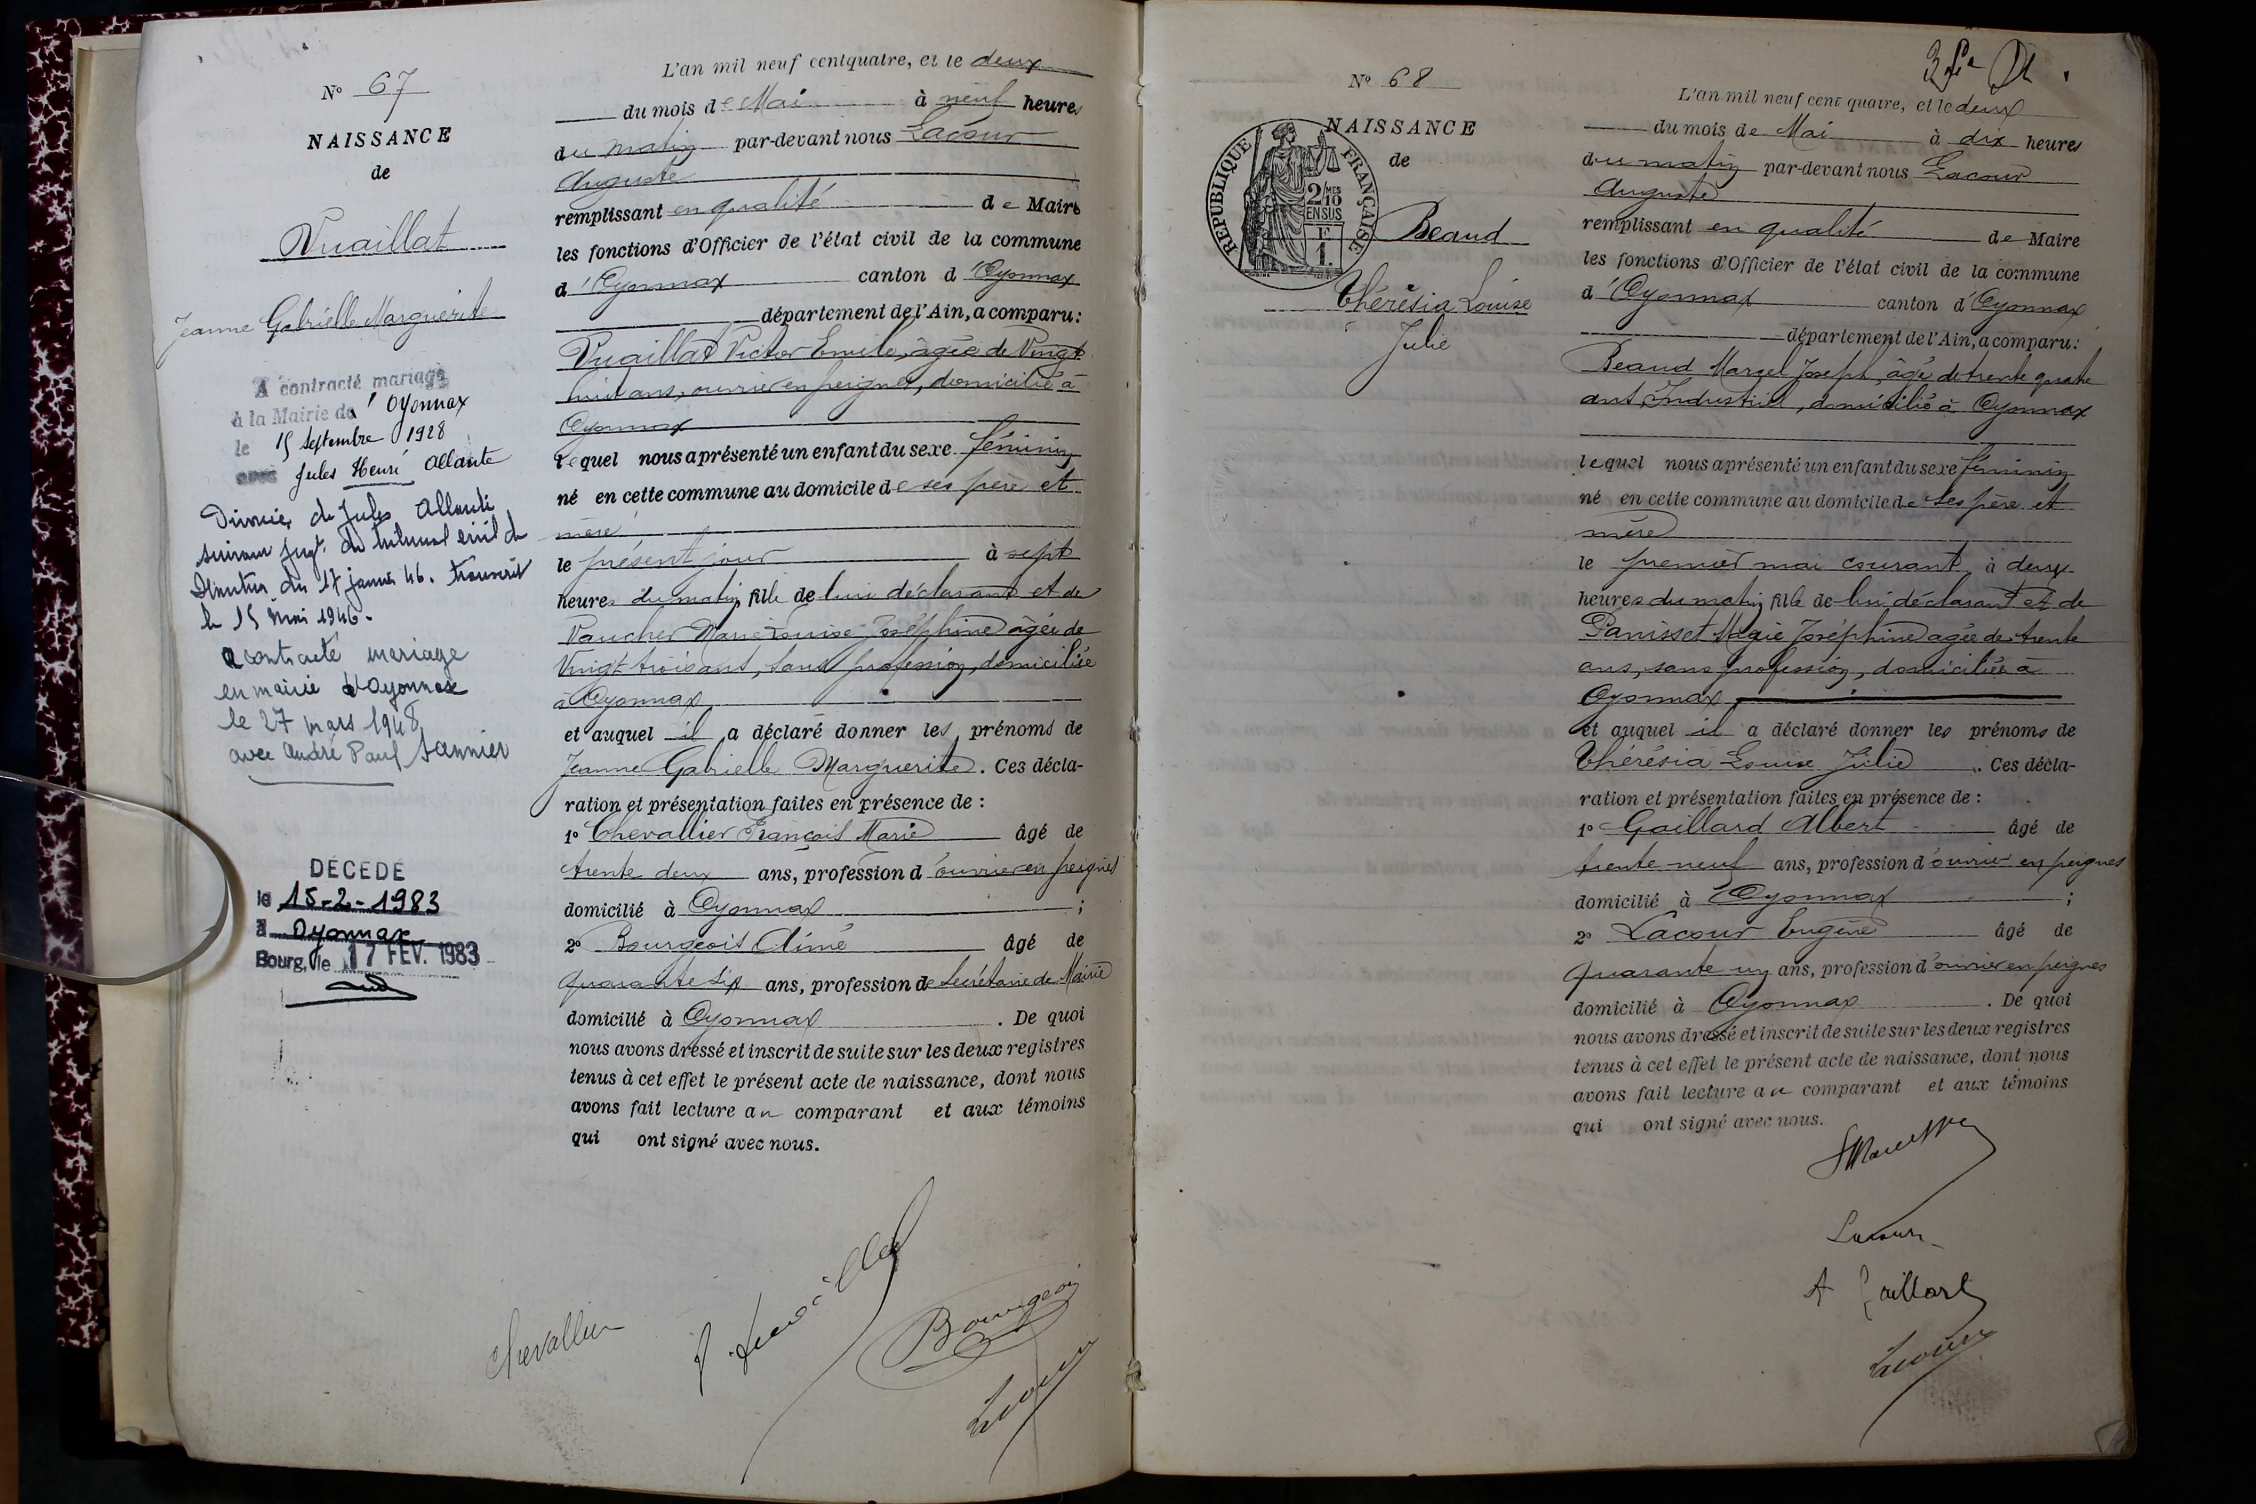 Nº 67
NAISSANCE
de
Vuaillat
Jeanne Gabrielle Marguerite
A contracté mariage
à la Mairie d'Oyonnax
le 15 Septembre 1928
avec Jules Henri Allante
Divorcée de Jules Allante
suivant jugt. du tribunal civil de
Nantua du 17 janvier 46. transcrit
le 15 mai 1946.
a contracté mariage
en mairie d'Oyonnax
le 27 mars 1948
avec André Paul Sannier
DÉCÉDÉ
le 15-2-1983
à Oyonnax
Bourg, le 17 FEV. 1983
L'an mil neuf cent quatre, et le deux
du mois de Mai à neuf heures
du matin par-devant nous Lacour
Auguste
remplissant en qualité de Maire
les fonctions d'Officier de l'état civil de la commune
d'Oyonnax canton d'Oyonnax
département de l'Ain, a comparu:
Vuaillat Victor Emile, âgée de Vingt
huit ans, ouvrier en peignes, domicilié à
Oyonnax
lequel nous a présenté un enfant du sexe féminin
né en cette commune au domicile de ses père et
mère
le présent jour à sept
heures du matin, fille de lui déclarant et de
Vaucher Marie Louise Joséphine âgée de
Vingt trois ans, sans profession, domiciliée
à Oyonnax
et auquel il a déclaré donner les prénoms de
Jeanne Gabrielle Marguerite. Ces décla-
ration et présentation faites en présence de :
1º Chevallier François Marie âgé de
trente deux ans, profession d'ouvrier en peignes
domicilié à Oyonnax ;
2º Bourgeois Aimé âgé de
quarante six ans, profession de Secrétaire de Mairie
domicilié à Oyonnax . De quoi
nous avons dressé et inscrit de suite sur les deux registres
tenus à cet effet le présent acte de naissance, dont nous
avons fait lecture au comparant et aux témoins
qui ont signé avec nous.
Chevallier
V. Vuaillat
Bourgeois
Lacour
Nº 68
NAISSANCE
de
RÉPUBLIQUE FRANÇAISE
2/10MES
EN SUS
1F
Beaud
Thérésia Louise
Julie
L'an mil neuf cent quatre, et le deux
du mois de Mai à dix heures
du matin par-devant nous Lacour
Auguste
remplissant en qualité de Maire
les fonctions d'Officier de l'état civil de la commune
d'Oyonnax canton d'Oyonnax
département de l'Ain, a comparu:
Beaud Marcel Joseph, âgé de trente quatre
ans, Industriel, domicilié à Oyonnax
lequel nous a présenté un enfant du sexe féminin
né en cette commune au domicile de ses père et
mère
le premier mai courant, à deux
heures du matin, fille de lui déclarant et de
Panisset Marie Joséphine âgée de trente
ans, sans profession, domiciliée à
Oyonnax
et auquel il a déclaré donner les prénoms de
Thérésia Louise Julie . Ces décla-
ration et présentation faites en présence de :
1º Gaillard Albert âgé de
trente neuf ans, profession d'ouvrier en peignes
domicilié à Oyonnax ;
2º Lacour Eugène âgé de
quarante un ans, profession d'ouvrier en peignes
domicilié à Oyonnax . De quoi
nous avons dressé et inscrit de suite sur les deux registres
tenus à cet effet le présent acte de naissance, dont nous
avons fait lecture au comparant et aux témoins
qui ont signé avec nous.
Lacour
A Gaillard
Lacour